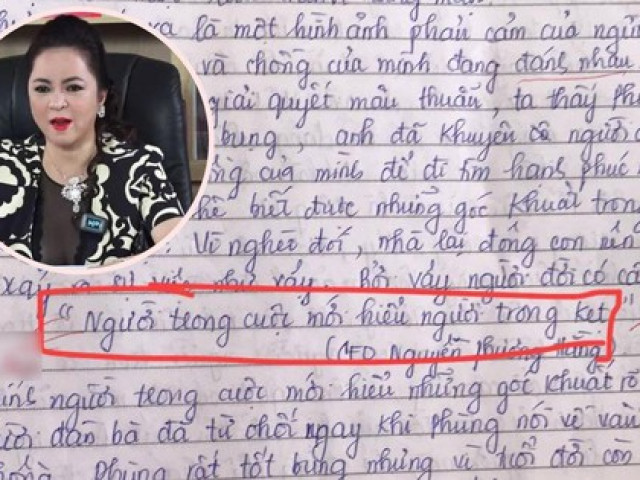 va là một hình ảnh phản cảm của người
và chồng của mình đang đánh nhau
giải quyết mâu thuẫn, ta thấy Phù
bụng, anh đã khuyên cô người
của mình để đi tìm hạnh phúc
biết được những góc khuất tron
Vì nghèo đói, nhà lại đông con nên
xảy ra sự việc như vậy. Bởi vậy người đời có câ
" Người trong cuộc mới hiểu người trong kẹt "
(CEO Nguyễn Phương Hằng)
người trong cuộc mới hiểu những góc khuất rõ
đàn bà đã từ chối ngay khi phùng nói về vấn
Phùng rất tốt bụng nhưng vì tuổi đời còn